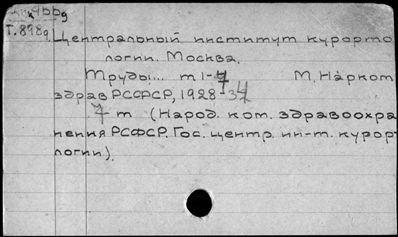 Т.898g
Центральный институт курорто
логии. Москва.
Труды... т 1-7 М. Наркот
здрав РСФСР, 1928-34
7 т (Народ. ком. здравоохра
нения РСФСР. Гос. центр. ин-т. курорт
логии).